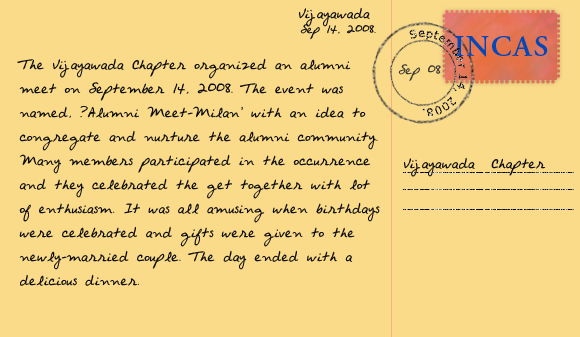 Vijayawada
Sep 14, 2008.
The Vijayawada Chapter organized an alumni
meet on September 14, 2008. The event was
named, ?Alumni Meet-Milan' with an idea to
congregate and nurture the alumni community.
Many members participated in the occurrence
and they celebrated the get together with lot
of enthusiasm. It was all amusing when birthdays
were celebrated and gifts were given to the
newly-married couple. The day ended with a
delicious dinner.
INCAS
September 14, 2008.
Sep 08
Vijayawada Chapter